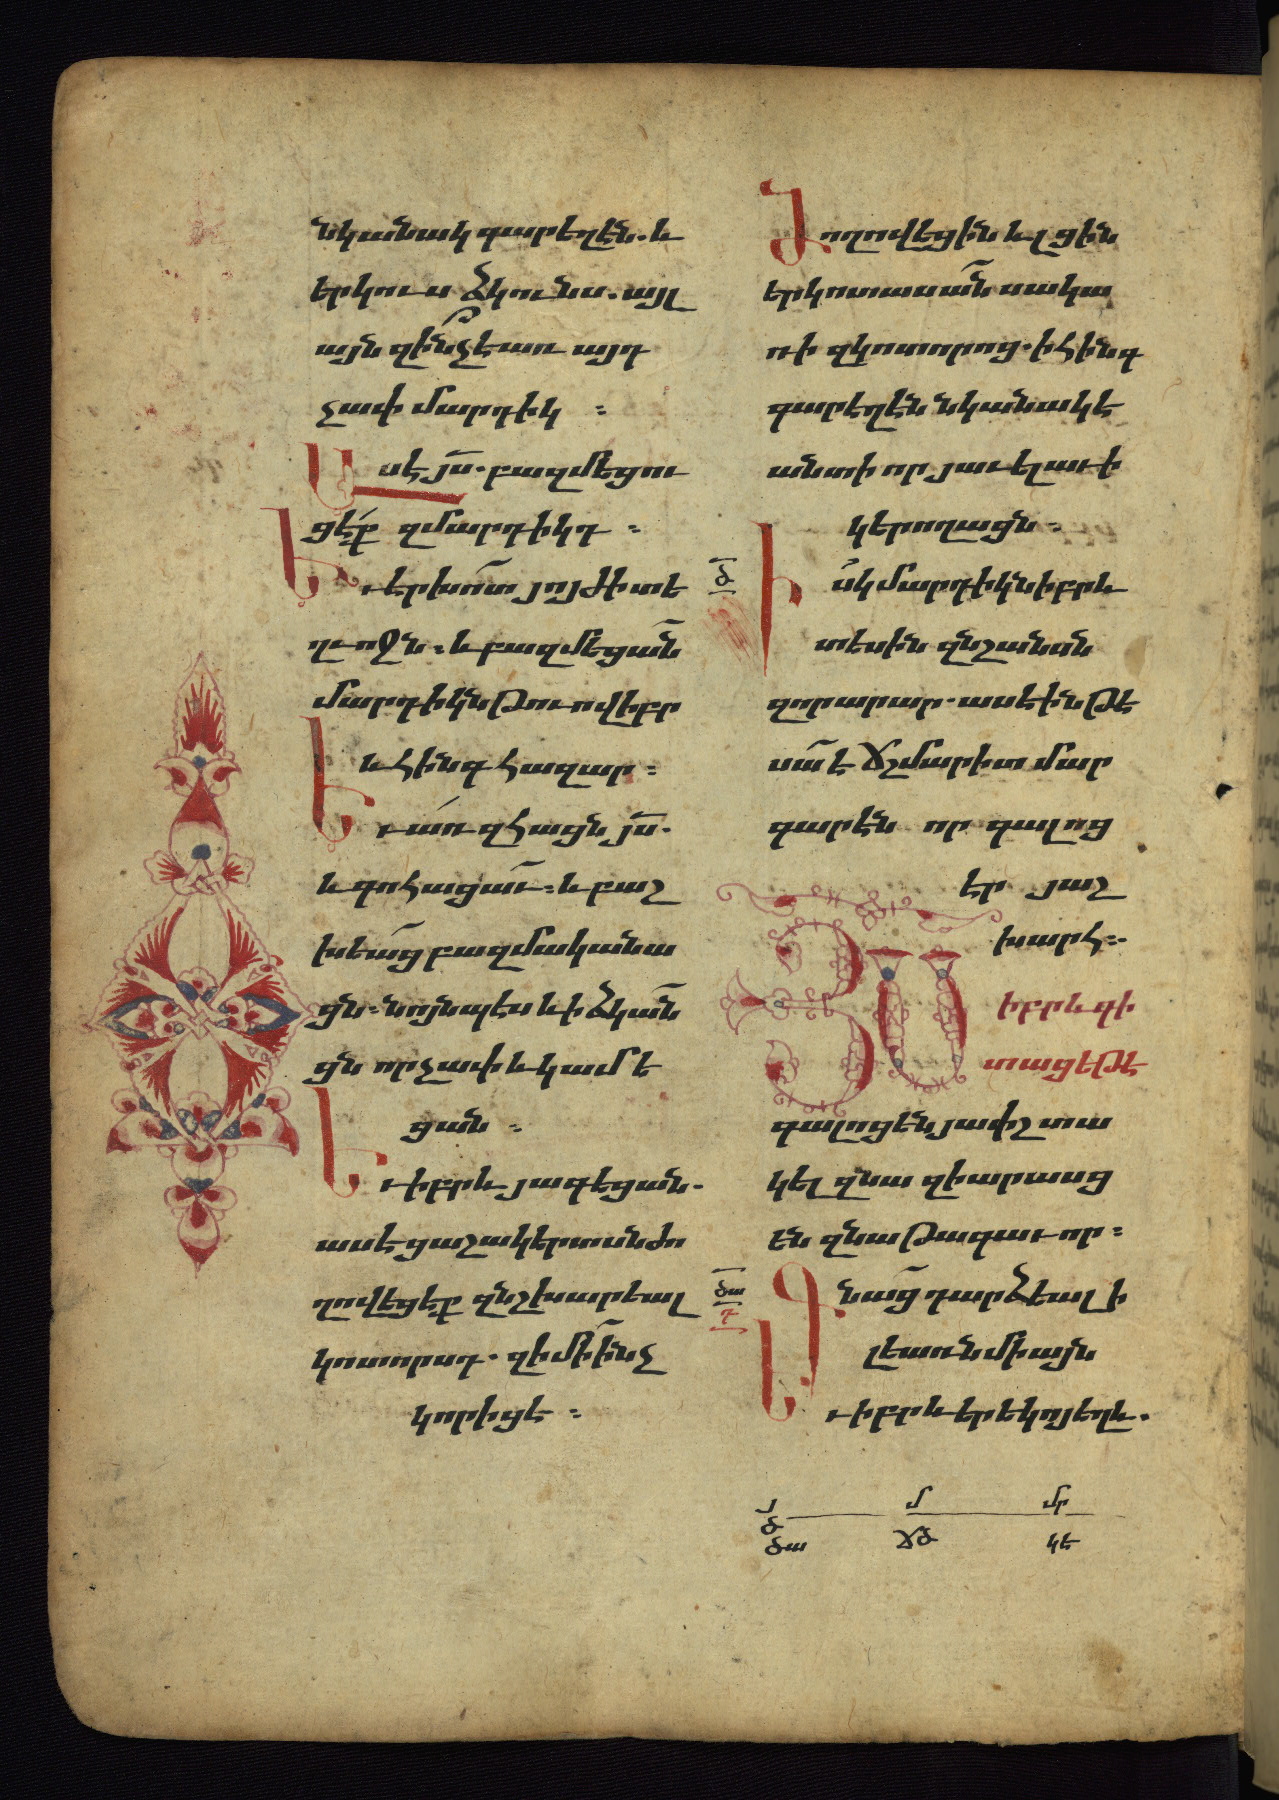 նկանակ գարեղէն. և
երկուս ձկունս. այլ
այն զի՞նչ է առ այդ
չափ մարդիկ ։
Ասէ յս. բազմեցու
ցէք զմարդիկդ ։
Եւ էր խոտ յոյժ ի տե
ղւոջն ։ և բազմեցան
մարդիկն թուով իբր
և հինգ հազար ։
Եւ առ զհացն յս.
և գոհացաւ ։ և բաշ
խեաց բազմականա
ցն ։ նոյնպէս և ի ձկան
ցն որչափ և կամե
ցան ։
Եւ իբրև յագեցան.
ասէ ցաշակերտսն ժո
ղովեցէք զնշխարեալ
կոտորսդ. զի մի ինչ
կորիցէ ։
Ժողովեցին և լցին
երկոտասան սակա
ռի զկոտորոց. ի հինգ
գարեղէն նկանակէ
անտի որ յաւելաւ ի
կերողացն ։
ծ
Իսկ մարդիկն իբրև
տեսին զնշանսն
զոր արար. ասէին թէ
սա է ճշմարիտ մար
գարէն որ գալոց
էր յաշ
խարհ ։
Յս իբրև գի
տաց եթէ
գալոց են յափշտա
կել զնա զի արասց
են զնա թագաւոր ։
ծա
դ
Գնաց դարձեալ ի
լեառն միայն
Եւ իբրև երեկոյ եղև.
յ մ մր
ծ
ծա ճծ կե